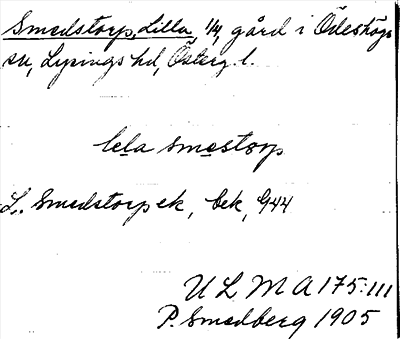 Smedstorp, Lilla, 1/4, gård i Ödeshögs
sn, Lysings hd, Österg. l.
lela smestorp
L. Smedstorp ek, bek, G44
ULMA 175:111
P. Smedberg 1905